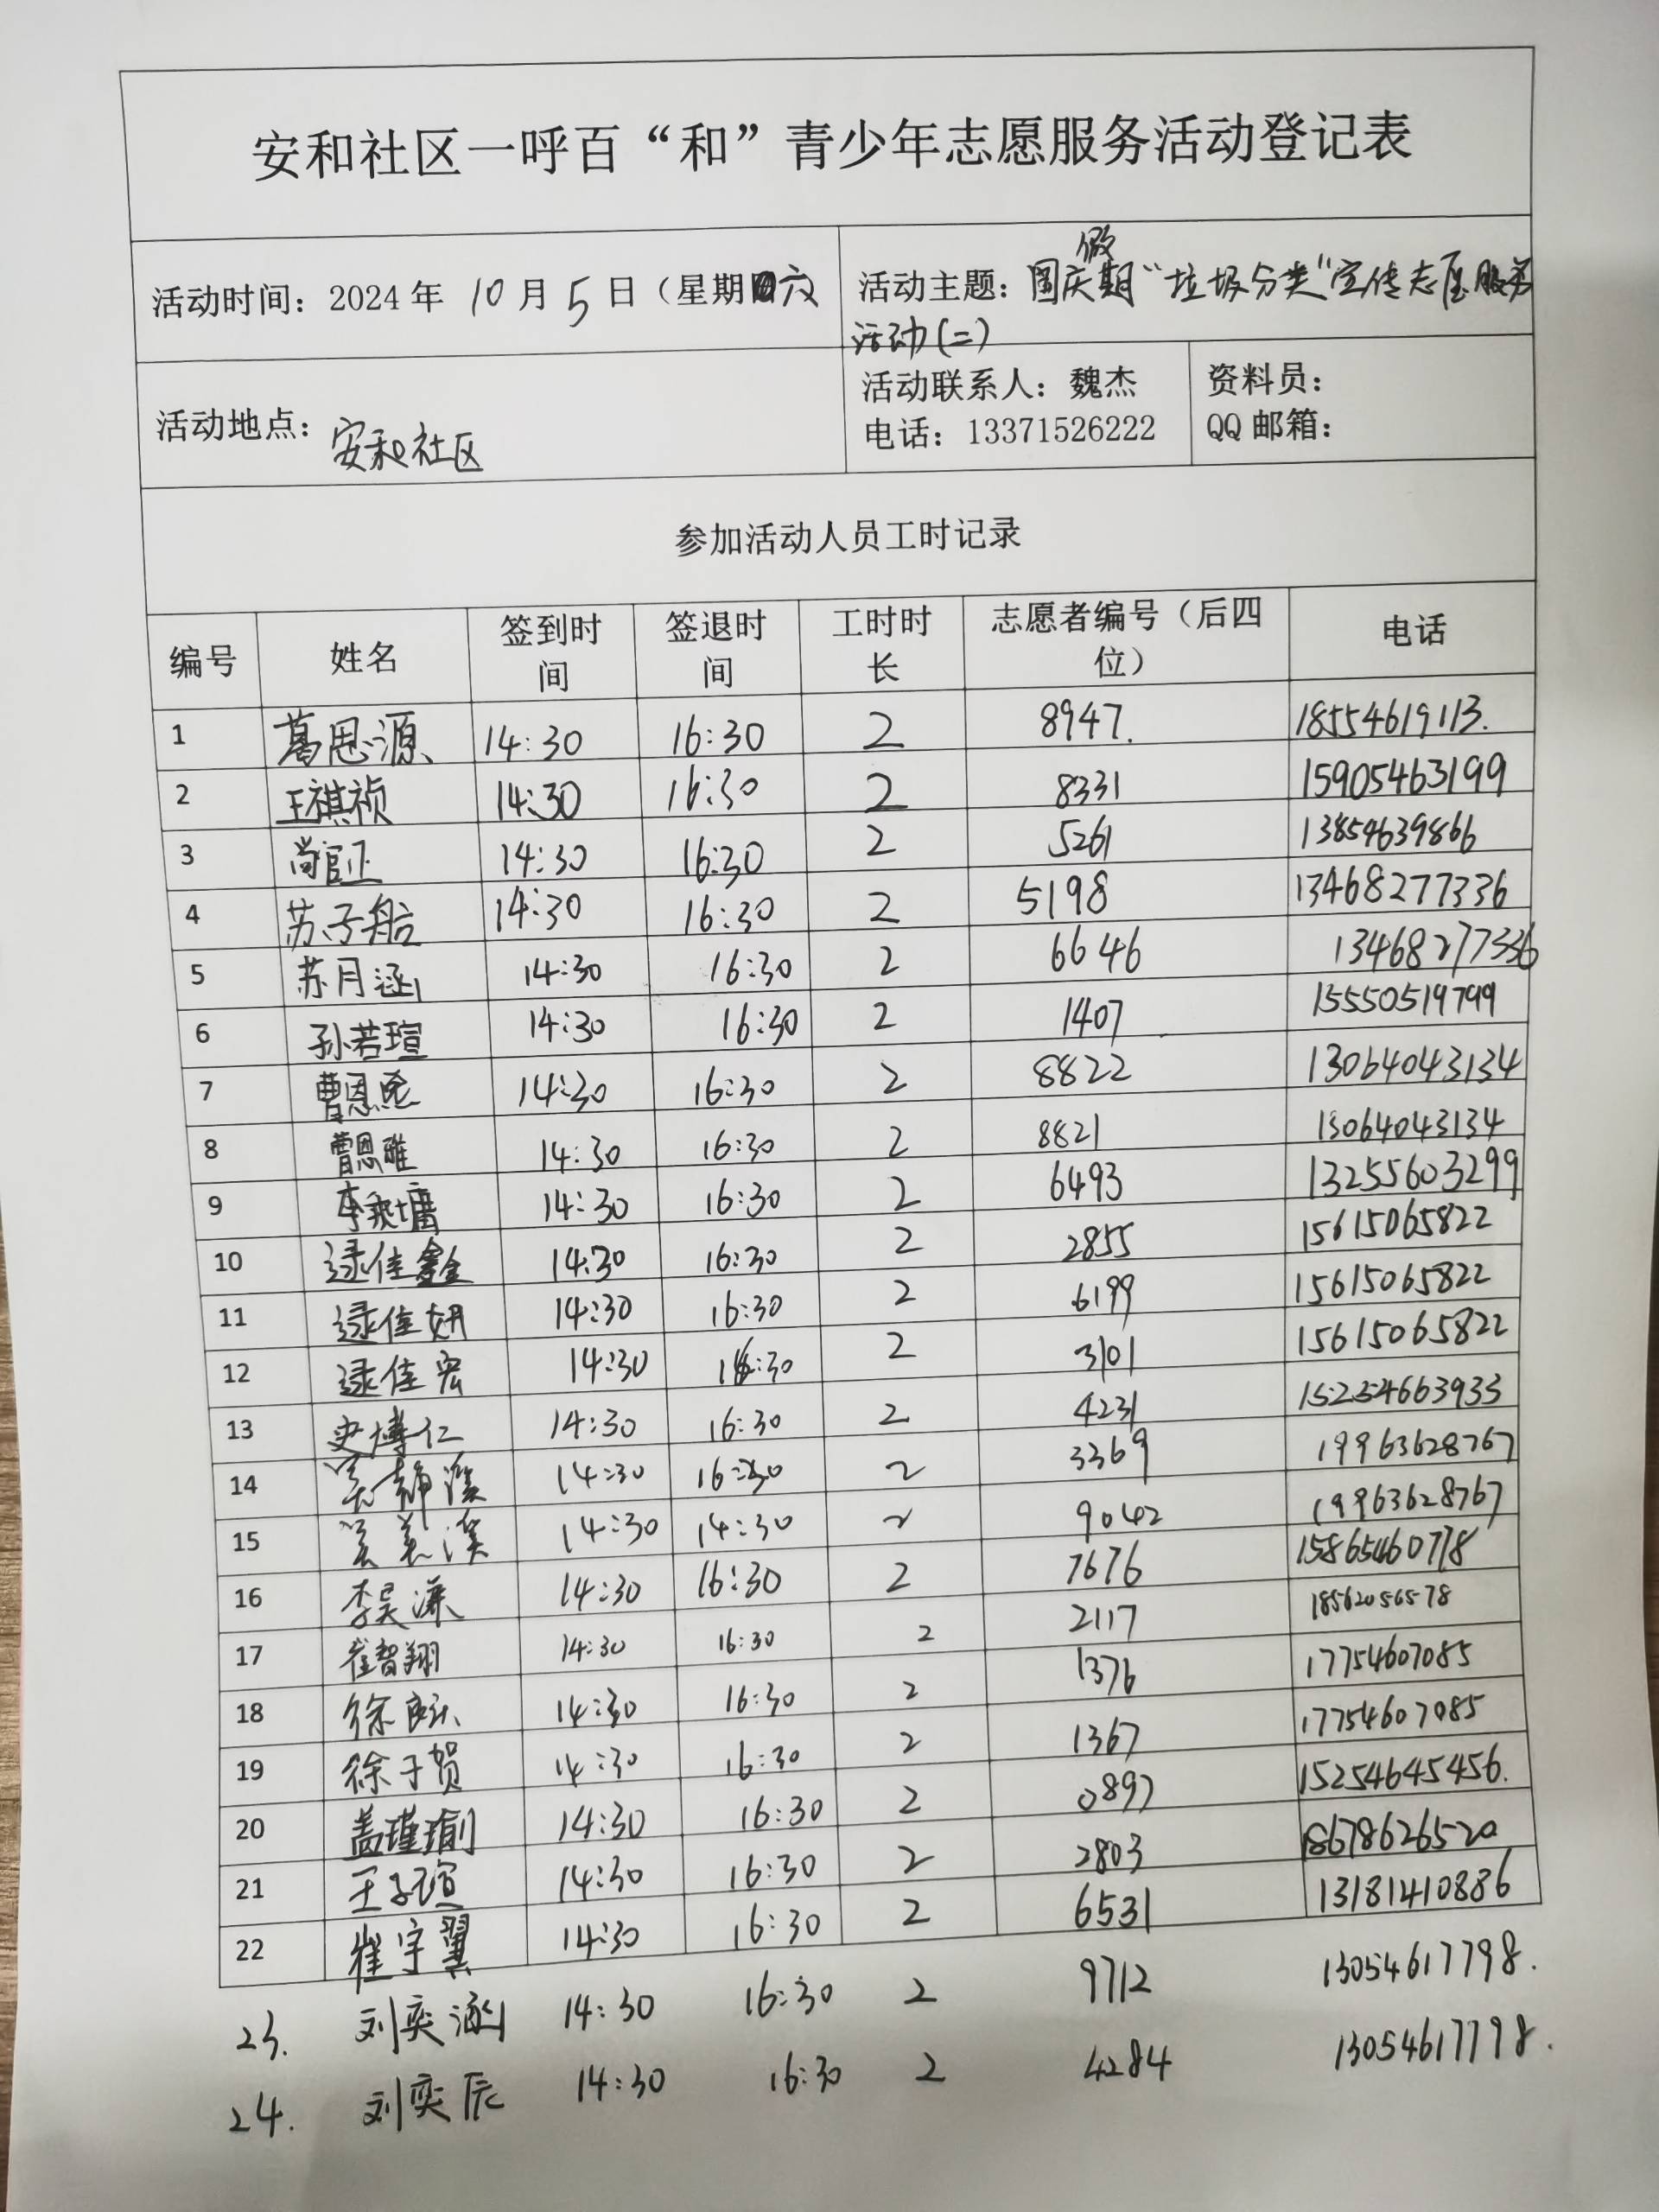 安和社区一呼百“和”青少年志愿服务活动登记表
活动时间：2024年 10月5日（星期六 活动主题：国庆假期“垃圾分类”宣传志愿服务
活动(二)
活动地点：安和社区 活动联系人：魏杰 资料员：
电话：13371526222 QQ邮箱：
参加活动人员工时记录
编号 姓名 签到时间 签退时间 工时时长 志愿者编号（后四位） 电话
1 葛思源 14:30 16:30 2 8947. 18554619113.
2 王祺祯 14:30 16:30 2 8331 15905463199
3 尚官正 14:30 16:30 2 5261 13854639866
4 苏子航 14:30 16:30 2 5198 13468277336
5 苏月涵 14:30 16:30 2 6646 13468277336
6 孙若瑄 14:30 16:30 2 1407 15550519799
7 曹恩 14:30 16:30 2 8822 13064043134
8 曹恩雅 14:30 16:30 2 8821 13064043134
9 李奕墉 14:30 16:30 2 6493 13255603299
10 逯佳鑫 14:30 16:30 2 2855 15615065822
11 逯佳妍 14:30 16:30 2 6199 15615065822
12 逯佳宏 14:30 16:30 2 3101 15615065822
13 史博仁 14:30 16:30 2 4231 15254663933
14 静溪 14:30 16:30 2 3369 19963628767
15 美溪 14:30 14:30 2 9042 19963628767
16 李昊濂 14:30 16:30 2 7676 15865460778
17 崔智翔 14:30 16:30 2 2117 18562056578
18 徐 14:30 16:30 2 1376 17754607085
19 徐子贺 14:30 16:30 2 1367 17754607085
20 盖瑾瑜 14:30 16:30 2 0897 15254645456.
21 王子瑄 14:30 16:30 2 2803 18678626520
22 崔宇翼 14:30 16:30 2 6531 13181410886
23. 刘奕涵 14:30 16:30 2 9712 13054617798.
24. 刘奕辰 14:30 16:30 2 4284 13054617798.